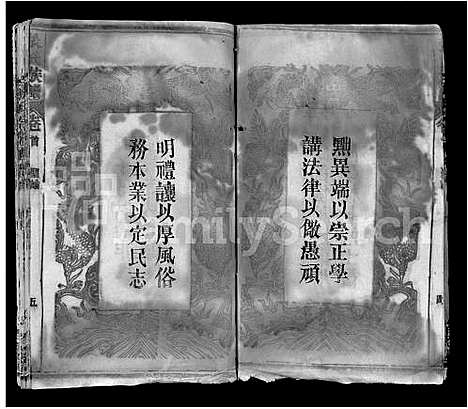 黜異端以崇正學
講法律以儆愚頑
明禮讓以厚風俗
務本業以定民志
族譜
卷首
五
FamilySearch